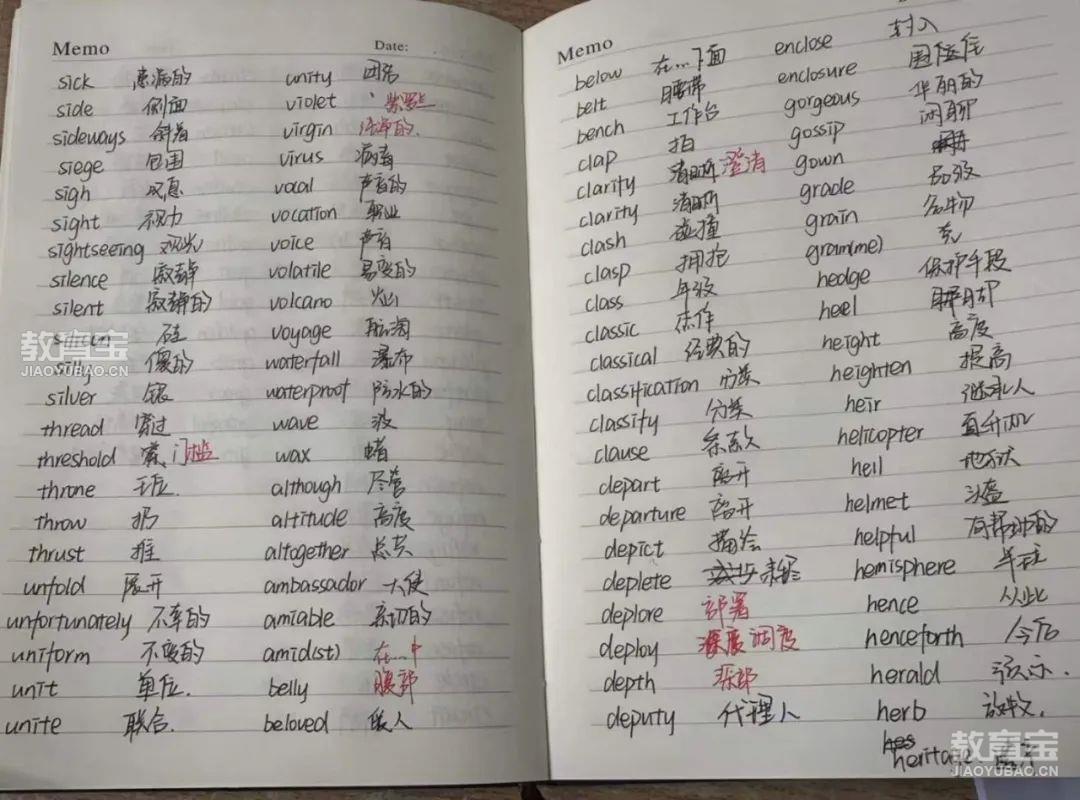 Memo Date:
sick 患病的 unity 团结
side 侧面 violet 紫罗兰
sideways 斜着 virgin 纯净的.
siege 包围 virus 病毒
sigh 叹息 vocal 声音的
sight 视力 vocation 职业
sightseeing 观光 voice 声音
silence 寂静 volatile 易变的
silent 寂静的 volcano 火山
silicon 硅 voyage 航海
silly 傻的 waterfall 瀑布
silver 银 waterproof 防水的
thread 穿过 wave 波
threshold 门槛 wax 蜡
throne 王位. although 尽管
throw 扔 altitude 高度
thrust 推 altogether 总共
unfold 展开 ambassador 大使
unfortunately 不幸的 amiable 亲切的
uniform 不变的 amid(st) 在…中
unit 单位. belly 腹部
unite 联合. beloved 爱人
Memo
below 在…下面 enclose 封入
belt 腰带 enclosure 围住
bench 工作台 gorgeous 华丽的
clap 拍 gossip 闲聊
clarity 清晰 澄清 gown
clarity 清晰 grade 品级
clash 碰撞 grain 谷物
clasp 拥抱 gram(me) 克
class 年级 hedge 保护手段
classic 杰作 heel 脚
classical 经典的 height 高度
classification 分类 heighten 提高
classify 分类 heir 继承人
clause 条款 helicopter 直升机
depart 离开 hell 地狱
departure 离开 helmet 头盔
depict 描绘 helpful 有帮助的
deplete hemisphere 半球
deplore 部署 hence 从此
deploy 调度 henceforth 今后
depth 深部 herald 预示.
deputy 代理人 herb 草
heritage
教育宝
JIAOYUBAO.CN
教育宝
JIAOYUBAO.CN